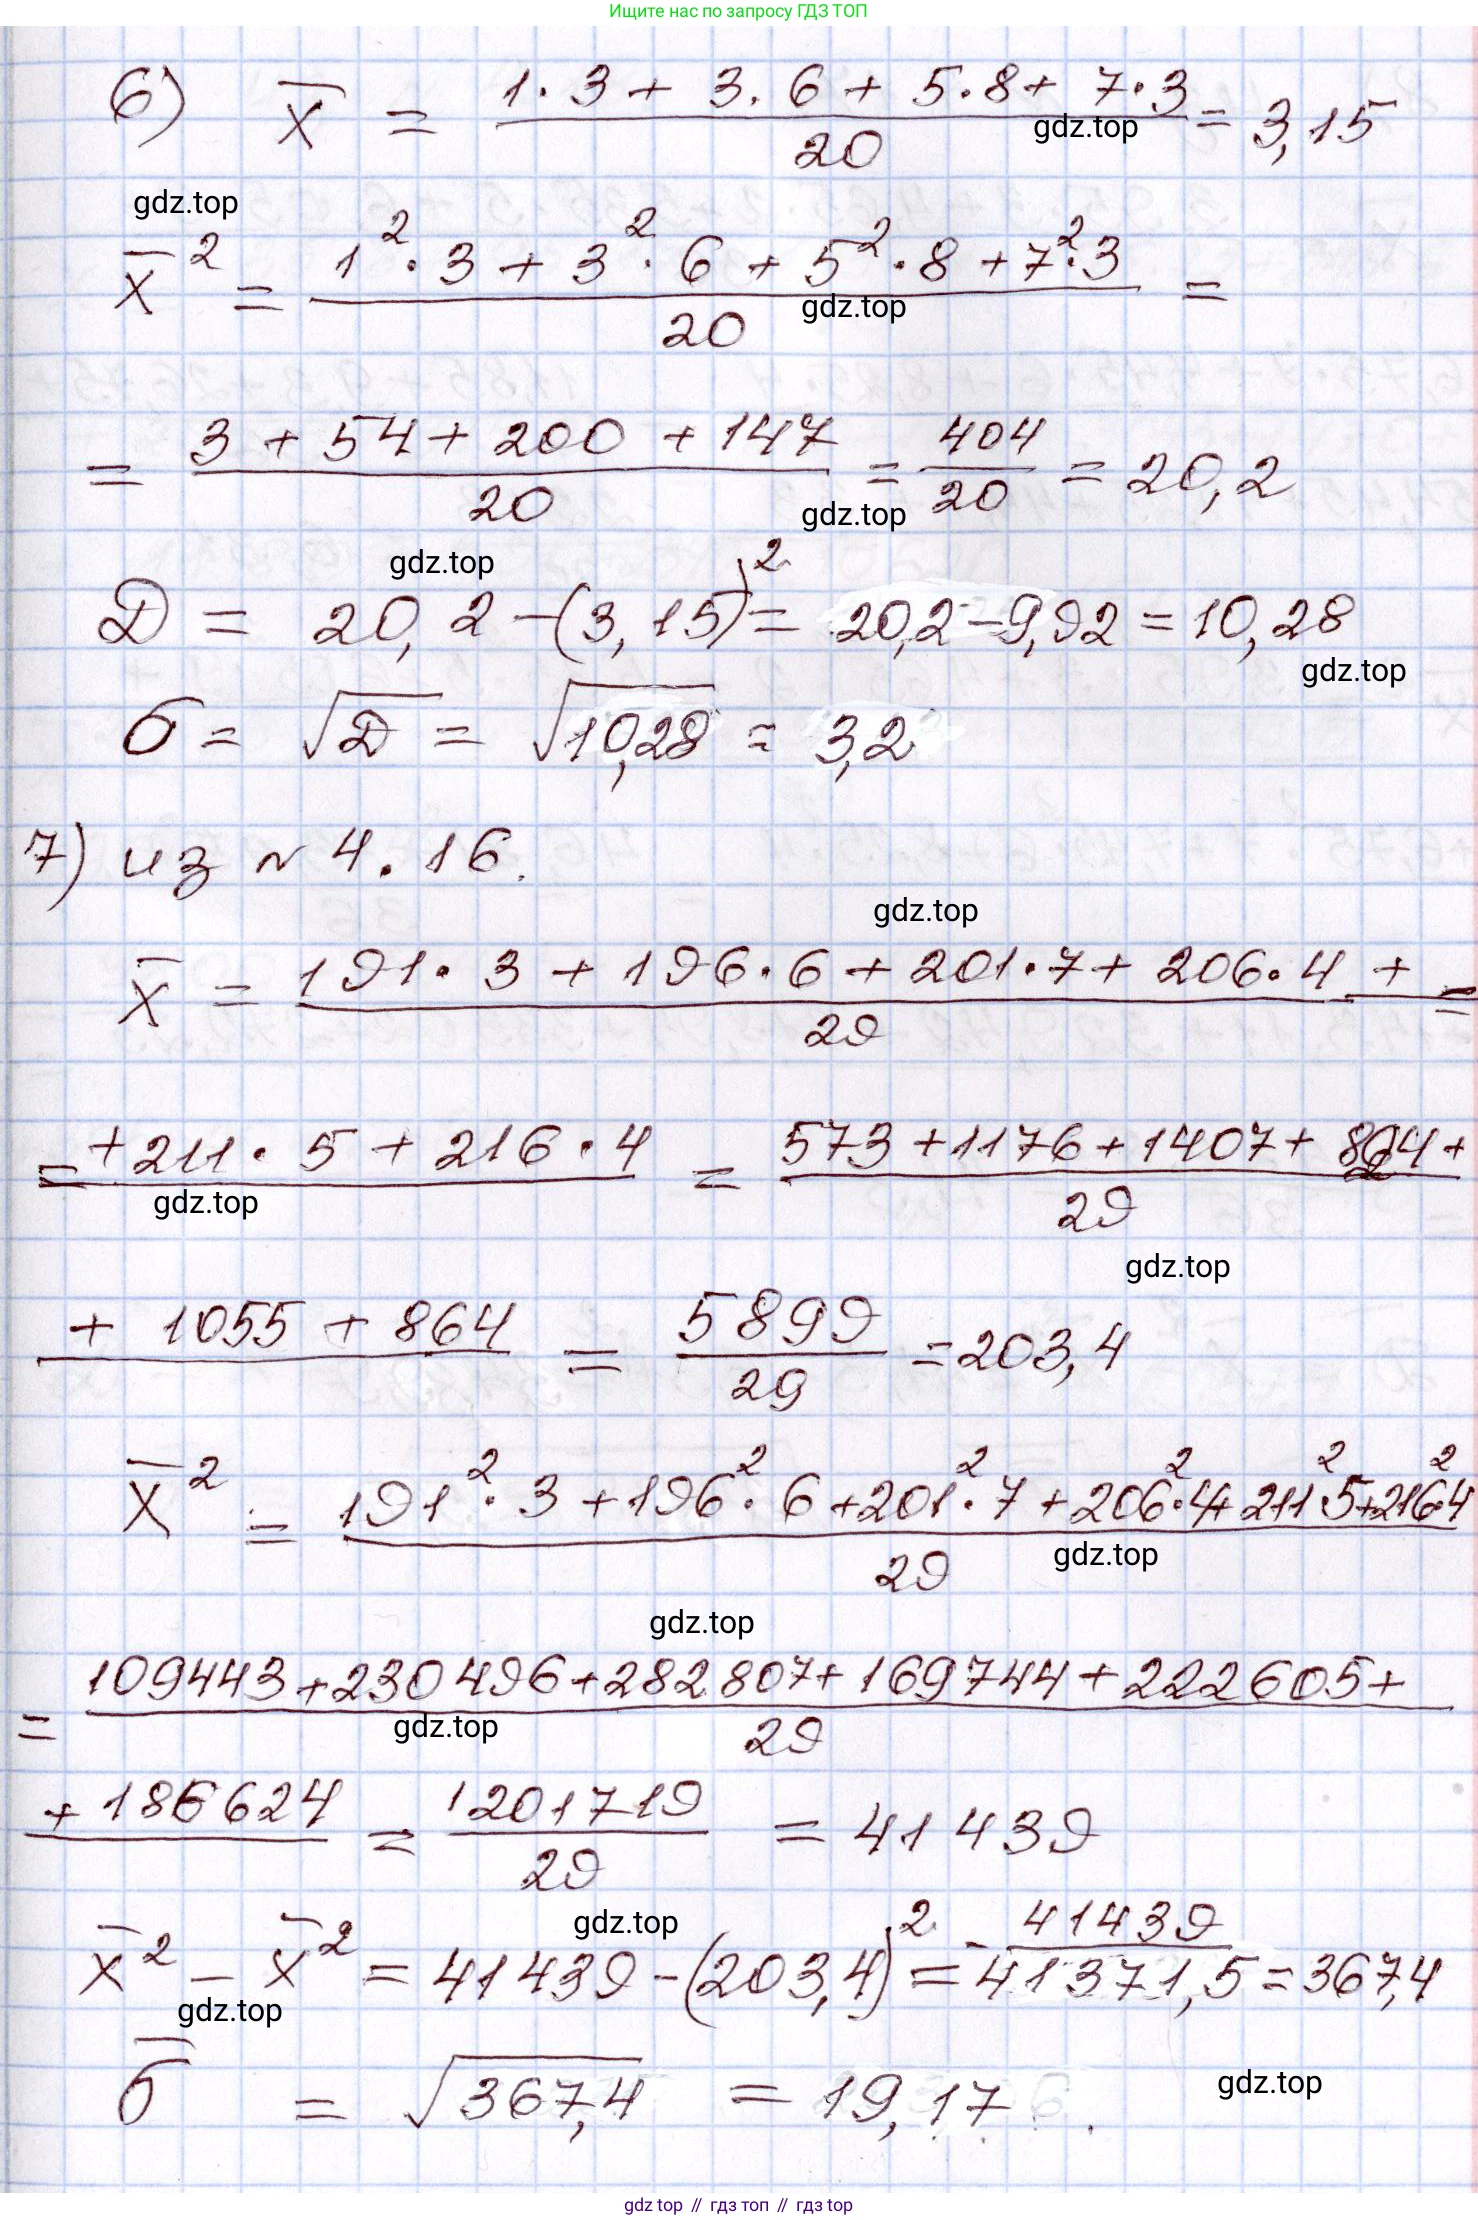 Ищите нас по запросу ГДЗ ТОП
6) x̄ = (1·3 + 3·6 + 5·8 + 7·3)/20 = 3,15
gdz.top
gdz.top
x̄² = (1²·3 + 3²·6 + 5²·8 + 7²·3)/20 =
gdz.top
= (3 + 54 + 200 + 147)/20 = 404/20 = 20,2
gdz.top
gdz.top
D = 20,2 - (3,15)² = 20,2 - 9,92 = 10,28
gdz.top
σ = √D = √10,28 = 3,2
7) из № 4.16.
gdz.top
x̄ = (191·3 + 196·6 + 201·7 + 206·4 +)/29 =
= +211·5 + 216·4 = (573 + 1176 + 1407 + 824 +)/29
gdz.top
gdz.top
+ 1055 + 864 = 5899/29 = 203,4
x̄² = (191²·3 + 196²·6 + 201²·7 + 206²·4 + 211²·5 + 216²·4)/29
gdz.top
gdz.top
= (109443 + 230496 + 282807 + 169744 + 222605 +)/29
gdz.top
+ 186624 = 1201719/29 = 41439
gdz.top
x̄² - x̄² = 41439 - (203,4)² = 41439 - 41371,5 = 367,4
gdz.top
σ̄ = √367,4 = 19,17.
gdz.top
gdz top // гдз топ // gdz top